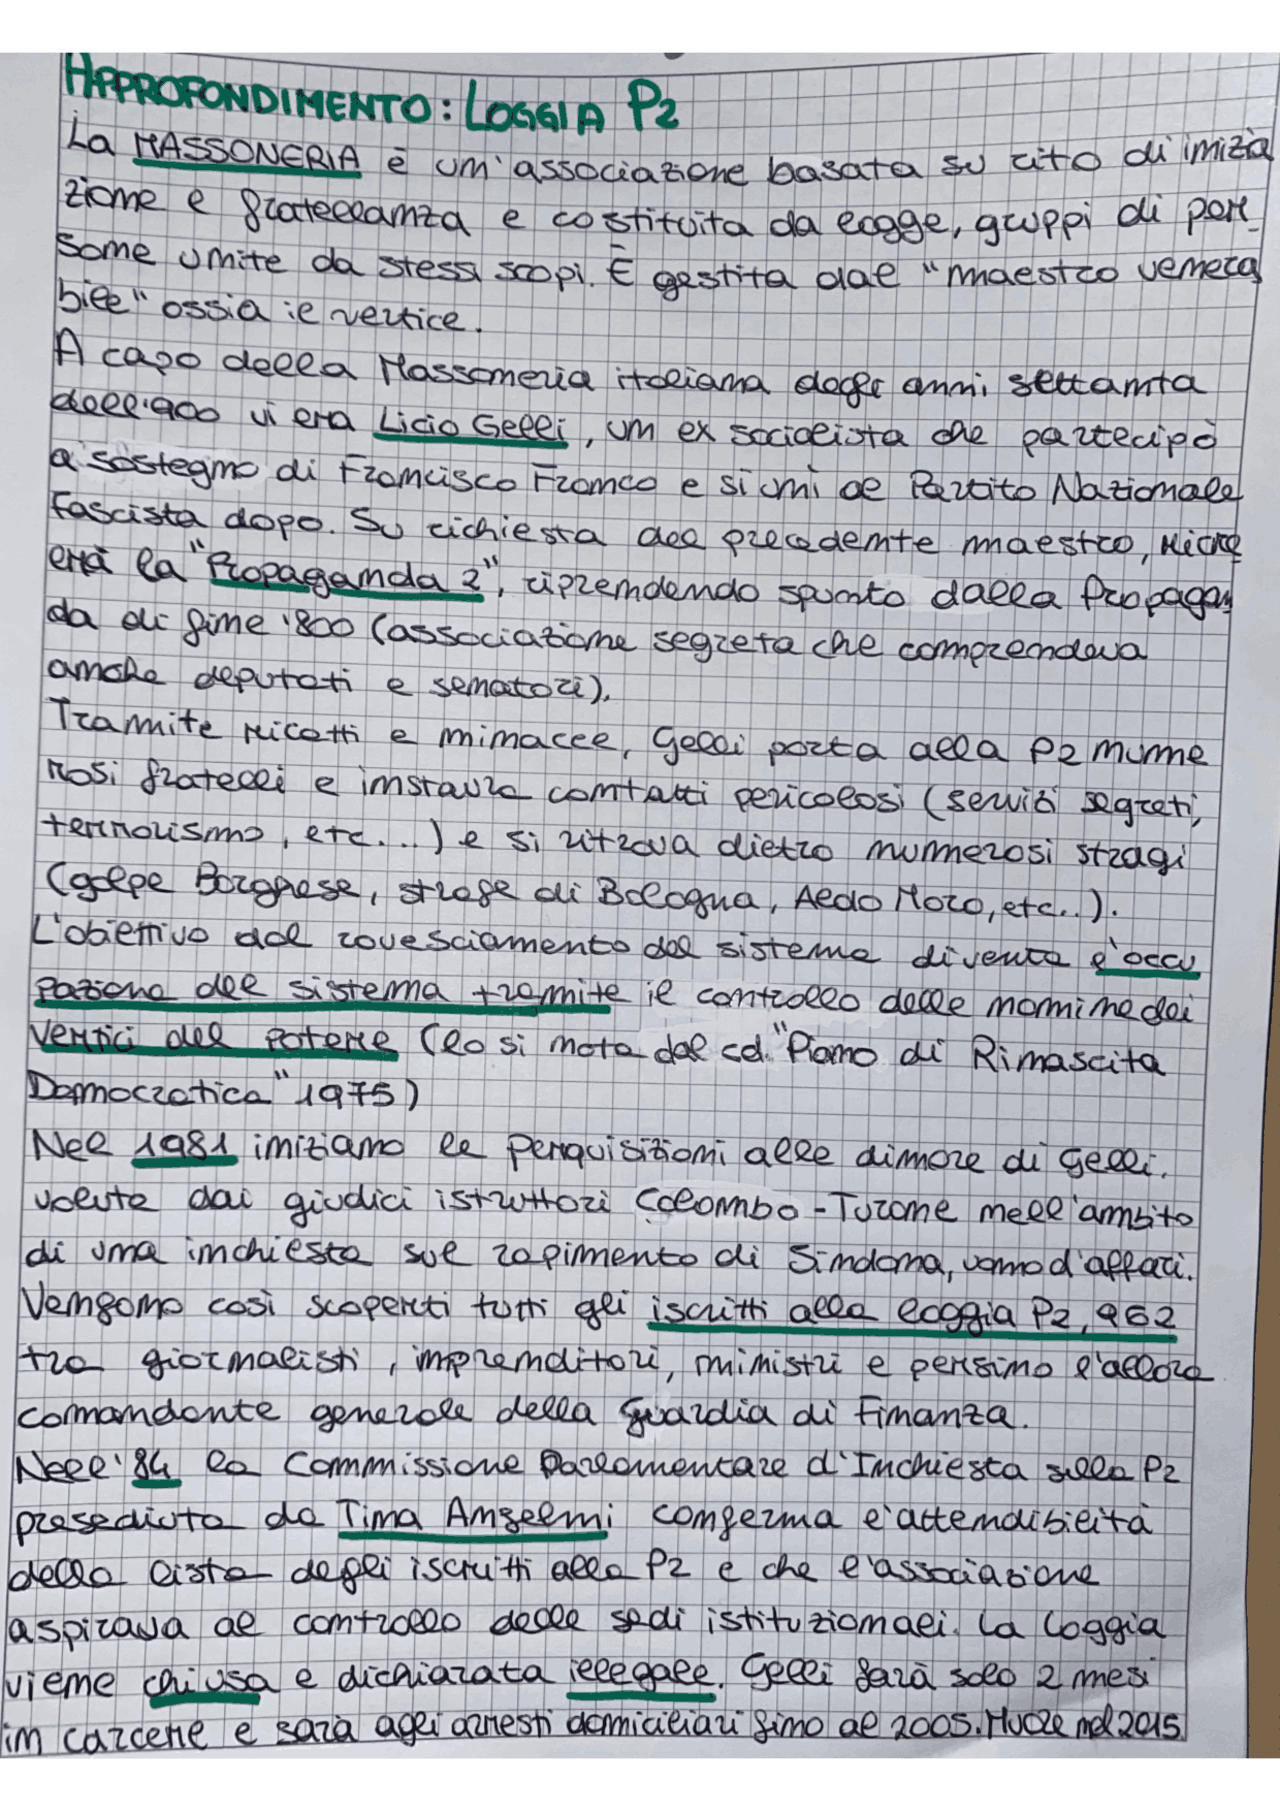 APPROFONDIMENTO: LOGGIA P2
La MASSONERIA è un'associazione basata su rito di inizia
zione e fratellanza e costituita da logge, gruppi di per_
sone unite da stessi scopi. È gestita dal "maestro venera
bile" ossia il vertice.
A capo della Massoneria italiana degli anni settanta
dell'900 vi era Licio Gelli, un ex socialista che partecipò
a sostegno di Francisco Franco e si unì al Partito Nazionale
Fascista dopo. Su richiesta del precedente maestro, ricre
erà la "Propaganda 2", riprendendo spunto dalla Propagan
da di fine '800 (associazione segreta che comprendeva
anche deputati e senatori).
Tramite ricatti e minacce, Gelli porta alla P2 nume
rosi fratelli e instaura contatti pericolosi (servizi segreti,
terrorismo, etc...) e si ritrova dietro numerosi stragi
(golpe Borghese, strage di Bologna, Aldo Moro, etc..).
L'obiettivo dal rovesciamento del sistema diventa l'occu
pazione del sistema tramite il controllo delle nomine dei
vertici del potere (lo si nota dal cd. "Piano di Rinascita
Democratica" 1975)
Nel 1981 iniziano le perquisizioni alle dimore di Gelli.
volute dai giudici istruttori Colombo - Turone nell'ambito
di una inchiesta sul rapimento di Sindona, uomo d'affari.
Vengono così scoperti tutti gli iscritti alla loggia P2, 962
tra giornalisti, imprenditori, ministri e persino l'allora
comandante generale della Guardia di Finanza.
Nell'84 la Commissione Parlamentare d'Inchiesta sulla P2
presediuta da Tina Anselmi conferma l'attendibilità
della lista degli iscritti alla P2 e che l'associazione
aspirava al controllo delle sedi istituzionali. La loggia
viene chiusa e dichiarata illegale. Gelli farà solo 2 mesi
in carcere e sarà agli arresti domiciliari fino al 2005. Muore nel 2015